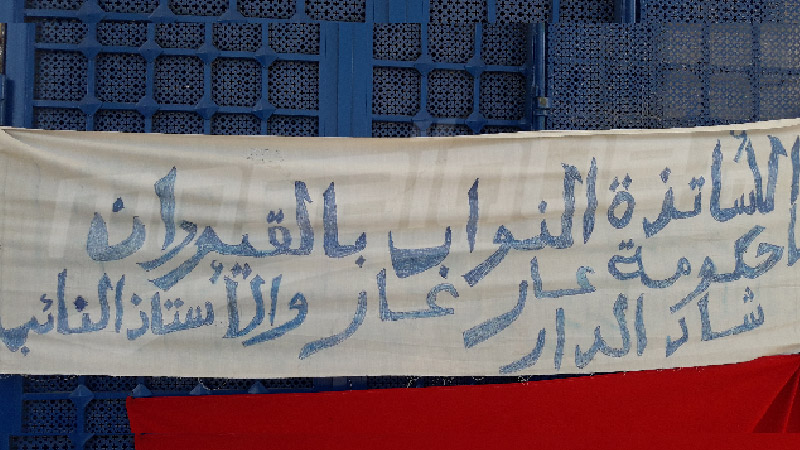 الأساتذة النواب بالقيروان
يا حكومة عار عار والأستاذ النائب
شاد الدار